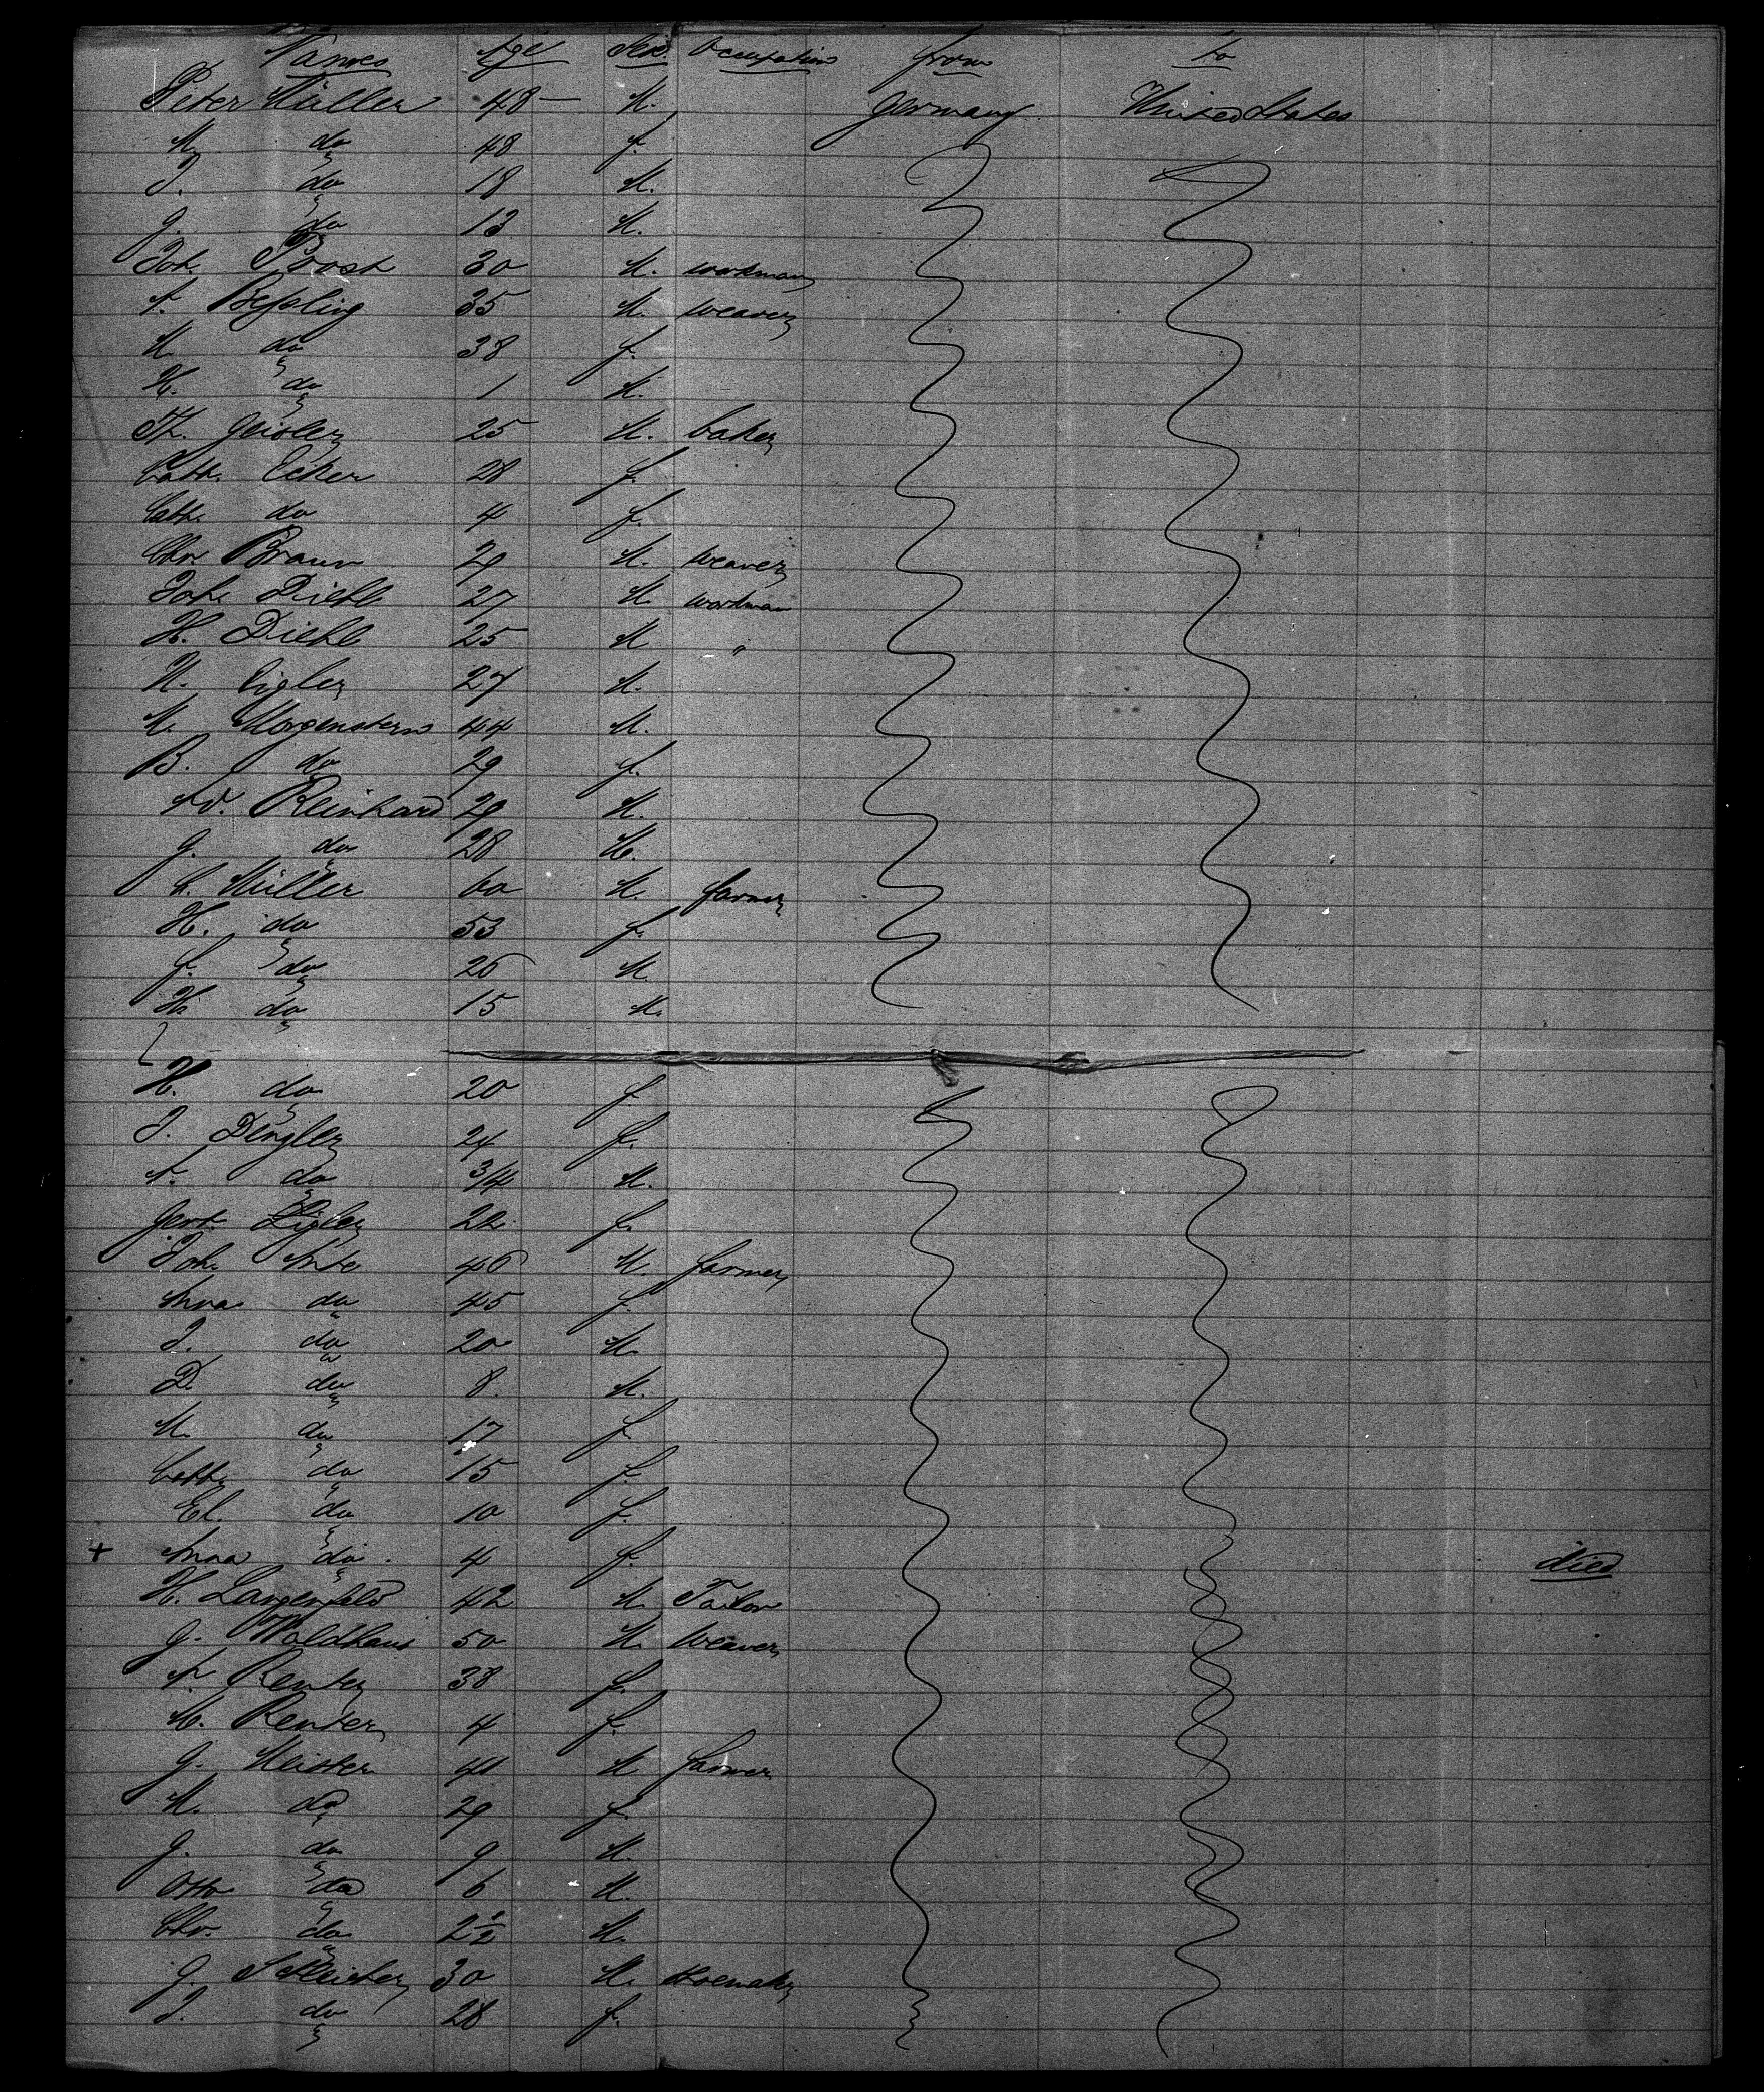 Names Age Sex. Occupation from to
Peter Müller 48 — M. Germany United States
M. do 48 f.
J. do 18 M.
G. do 13 M.
Joh. Proost 30 M. workman
A. Beßling 35 M. weaver
M do 38 f.
H. do 1 M.
Th. Geisler 25 M. baker
Cath. Ecker 28 f.
Cath. do 4 f.
Chr. Braun 29 M. weaver
Joh. Diehl 27 M workman
H. Diehl 25 M "
N. Eigler 27 M.
M. Morgenstern 44 M.
B. do 29 f.
Ad. Reinhard 29 M.
G. do 28 M.
C. Müller 60 M. farmer
H. do 53 f.
f. do 26 M.
H. do 15 M.
H. do 20 f
J. Dengler 24 f.
A. do 3/4 M.
Gert. Eigler 22 f.
Joh. Ante 46 M. farmer
Anna do 45 f.
J. do 20 M.
D. do 8. M.
M. do 17 f.
Cath. do 15 f.
El. do 10 f.
+ Anna do. 4 f. died
H. Langenfeld 42 M. Tailor
G. Waldhaus 50 M. weaver
A. Renter 38 f.
M. Renter 4 f.
G. Meister 40 M farmer
M. do 29 f.
G. do 9 M.
Otto do 6 M.
Chr. do 2 1/2 M.
G. Schleister 30 M. shoemaker
J. do 28 f.